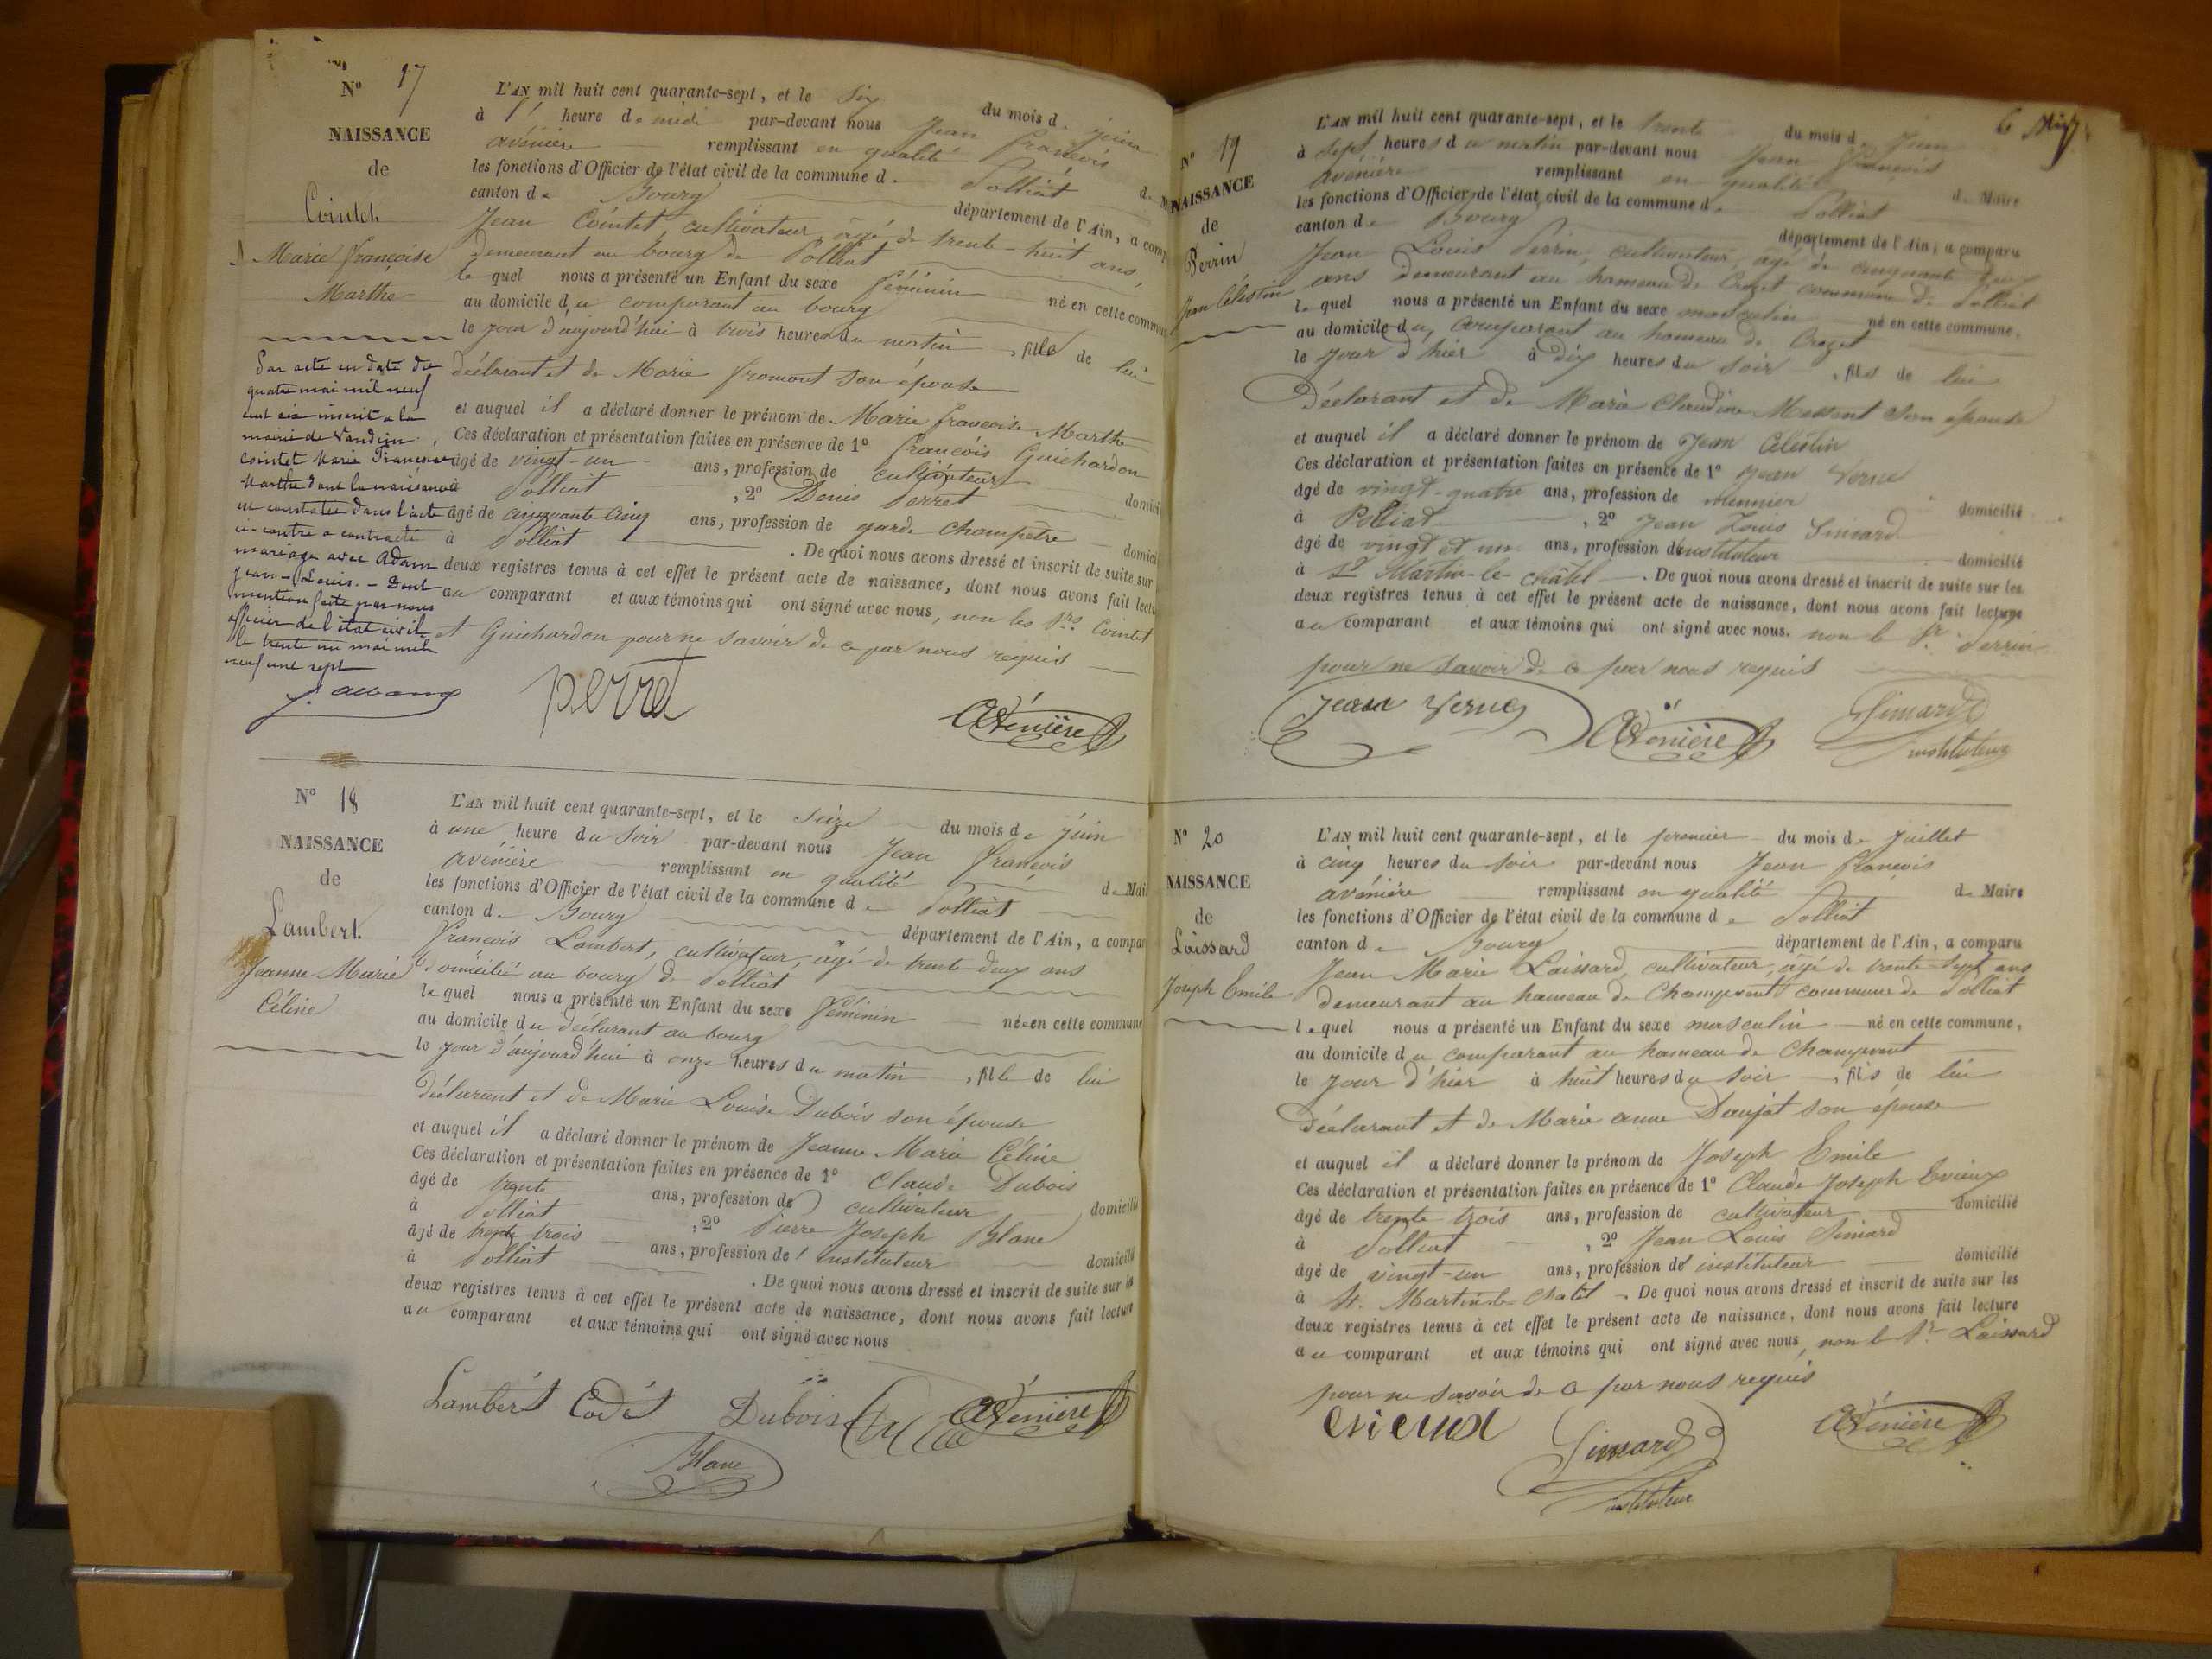 N° 17
NAISSANCE
de
Cointet
Marie françoise
Marthe
L'AN mil huit cent quarante-sept, et le Six du mois de juin
à l' heure de midi par-devant nous Jean françois
avénière remplissant en qualité de
les fonctions d'Officier de l'état civil de la commune d. Polliat
canton de Bourg département de l'Ain, a comp
Jean Cointet, cultivateur, âgé de trente-huit ans,
demeurant au bourg de Polliat
le quel nous a présenté un Enfant du sexe féminin né en cette commun
au domicile du comparant au bourg
le jour d'aujourd'hui à trois heures du matin, fille de lui
déclarant et de Marie fromont son épouse
et auquel il a déclaré donner le prénom de Marie françoise Marthe
Ces déclaration et présentation faites en présence de 1° françois Guichardon
âgé de vingt-un ans, profession de cultivateur domici
à Polliat, 2° Denis Perret
âgé de cinquante cinq ans, profession de garde champêtre domici
à Polliat. De quoi nous avons dressé et inscrit de suite sur
deux registres tenus à cet effet le présent acte de naissance, dont nous avons fait lectu
au comparant et aux témoins qui ont signé avec nous, non les Srs Cointet
et Guichardon pour ne savoir de ce par nous requis
Par acte en date du
quatre mai mil neuf
cent six inscrit à la
mairie de
Cointet Marie Françoise
Marthe dont la naissance
est constatée dans l'acte
ci-contre a contracté
mariage avec Adam
Jean-Louis. - Dont
mention faite par nous
officier de l'état civil
le trente un mai mil
neuf cent sept
perret
Avénière
N° 18
NAISSANCE
de
Lambert
Jeanne Marie
Céline
L'AN mil huit cent quarante-sept, et le Seize du mois de juin
à une heure du soir par-devant nous Jean françois
avénière remplissant en qualité de Mai
les fonctions d'Officier de l'état civil de la commune de Polliat
canton de Bourg département de l'Ain, a compar
françois Lambert, cultivateur, âgé de trente deux ans
domicilié au bourg de Polliat
le quel nous a présenté un Enfant du sexe féminin né en cette commune
au domicile du déclarant au bourg
le jour d'aujourd'hui à onze heures du matin, fille de lui
déclarant et de Marie Louise Dubois son épouse
et auquel il a déclaré donner le prénom de Jeanne Marie Céline
Ces déclaration et présentation faites en présence de 1° Claude Dubois
âgé de trente ans, profession de cultivateur domicilié
à Polliat, 2° Pierre Joseph Blanc
âgé de trente trois ans, profession d'instituteur domicilié
à Polliat. De quoi nous avons dressé et inscrit de suite sur les
deux registres tenus à cet effet le présent acte de naissance, dont nous avons fait lecture
au comparant et aux témoins qui ont signé avec nous
Lambert Dubois Avénière
Blanc
N° 19
NAISSANCE
de
Perrin
Jean Célestin
6
L'AN mil huit cent quarante-sept, et le trente du mois de Juin
à sept heures du matin par-devant nous Jean françois
avénière remplissant en qualité de Maire
les fonctions d'Officier de l'état civil de la commune de Polliat
canton de Bourg département de l'Ain, a comparu
Jean Louis Perrin, cultivateur, âgé de cinquante
ans demeurant au hameau de Crozet commune de Polliat
le quel nous a présenté un Enfant du sexe masculin né en cette commune,
au domicile du comparant au hameau de Crozet
le jour d'hier à dix heures du soir, fils de lui
Déclarant et de Marie Claudine son épouse
et auquel il a déclaré donner le prénom de Jean Célestin
Ces déclaration et présentation faites en présence de 1° Jean Verne
âgé de vingt-quatre ans, profession de meunier domicilié
à Polliat, 2° Jean Louis Simard
âgé de vingt et un ans, profession d'instituteur domicilié
à St Martin-le-châtel. De quoi nous avons dressé et inscrit de suite sur les
deux registres tenus à cet effet le présent acte de naissance, dont nous avons fait lecture
au comparant et aux témoins qui ont signé avec nous. non le Sr Perrin
pour ne savoir de ce par nous requis
Jean Verne Avénière Simard
instituteur
N° 20
NAISSANCE
de
Laissard
Joseph Emile
L'AN mil huit cent quarante-sept, et le premier du mois de Juillet
à cinq heures du soir par-devant nous Jean françois
avénière remplissant en qualité de Maire
les fonctions d'Officier de l'état civil de la commune de Polliat
canton de Bourg département de l'Ain, a comparu
Jean Marie Laissard, cultivateur, âgé de trente-sept ans
demeurant au hameau de Champvent commune de Polliat
le quel nous a présenté un Enfant du sexe masculin né en cette commune,
au domicile du comparant au hameau de Champvent
le jour d'hier à huit heures du soir, fils de lui
déclarant et de Marie anne Daujat son épouse
et auquel il a déclaré donner le prénom de Joseph Emile
Ces déclaration et présentation faites en présence de 1° Claude Joseph Evieux
âgé de trente trois ans, profession de cultivateur domicilié
à Polliat, 2° Jean Louis Simard
âgé de vingt-un ans, profession de instituteur domicilié
à St. Martin-le-Chatel. De quoi nous avons dressé et inscrit de suite sur les
deux registres tenus à cet effet le présent acte de naissance, dont nous avons fait lecture
au comparant et aux témoins qui ont signé avec nous, non le Sr Laissard
pour ne savoir de ce par nous requis
evieux Simard Avénière
instituteur